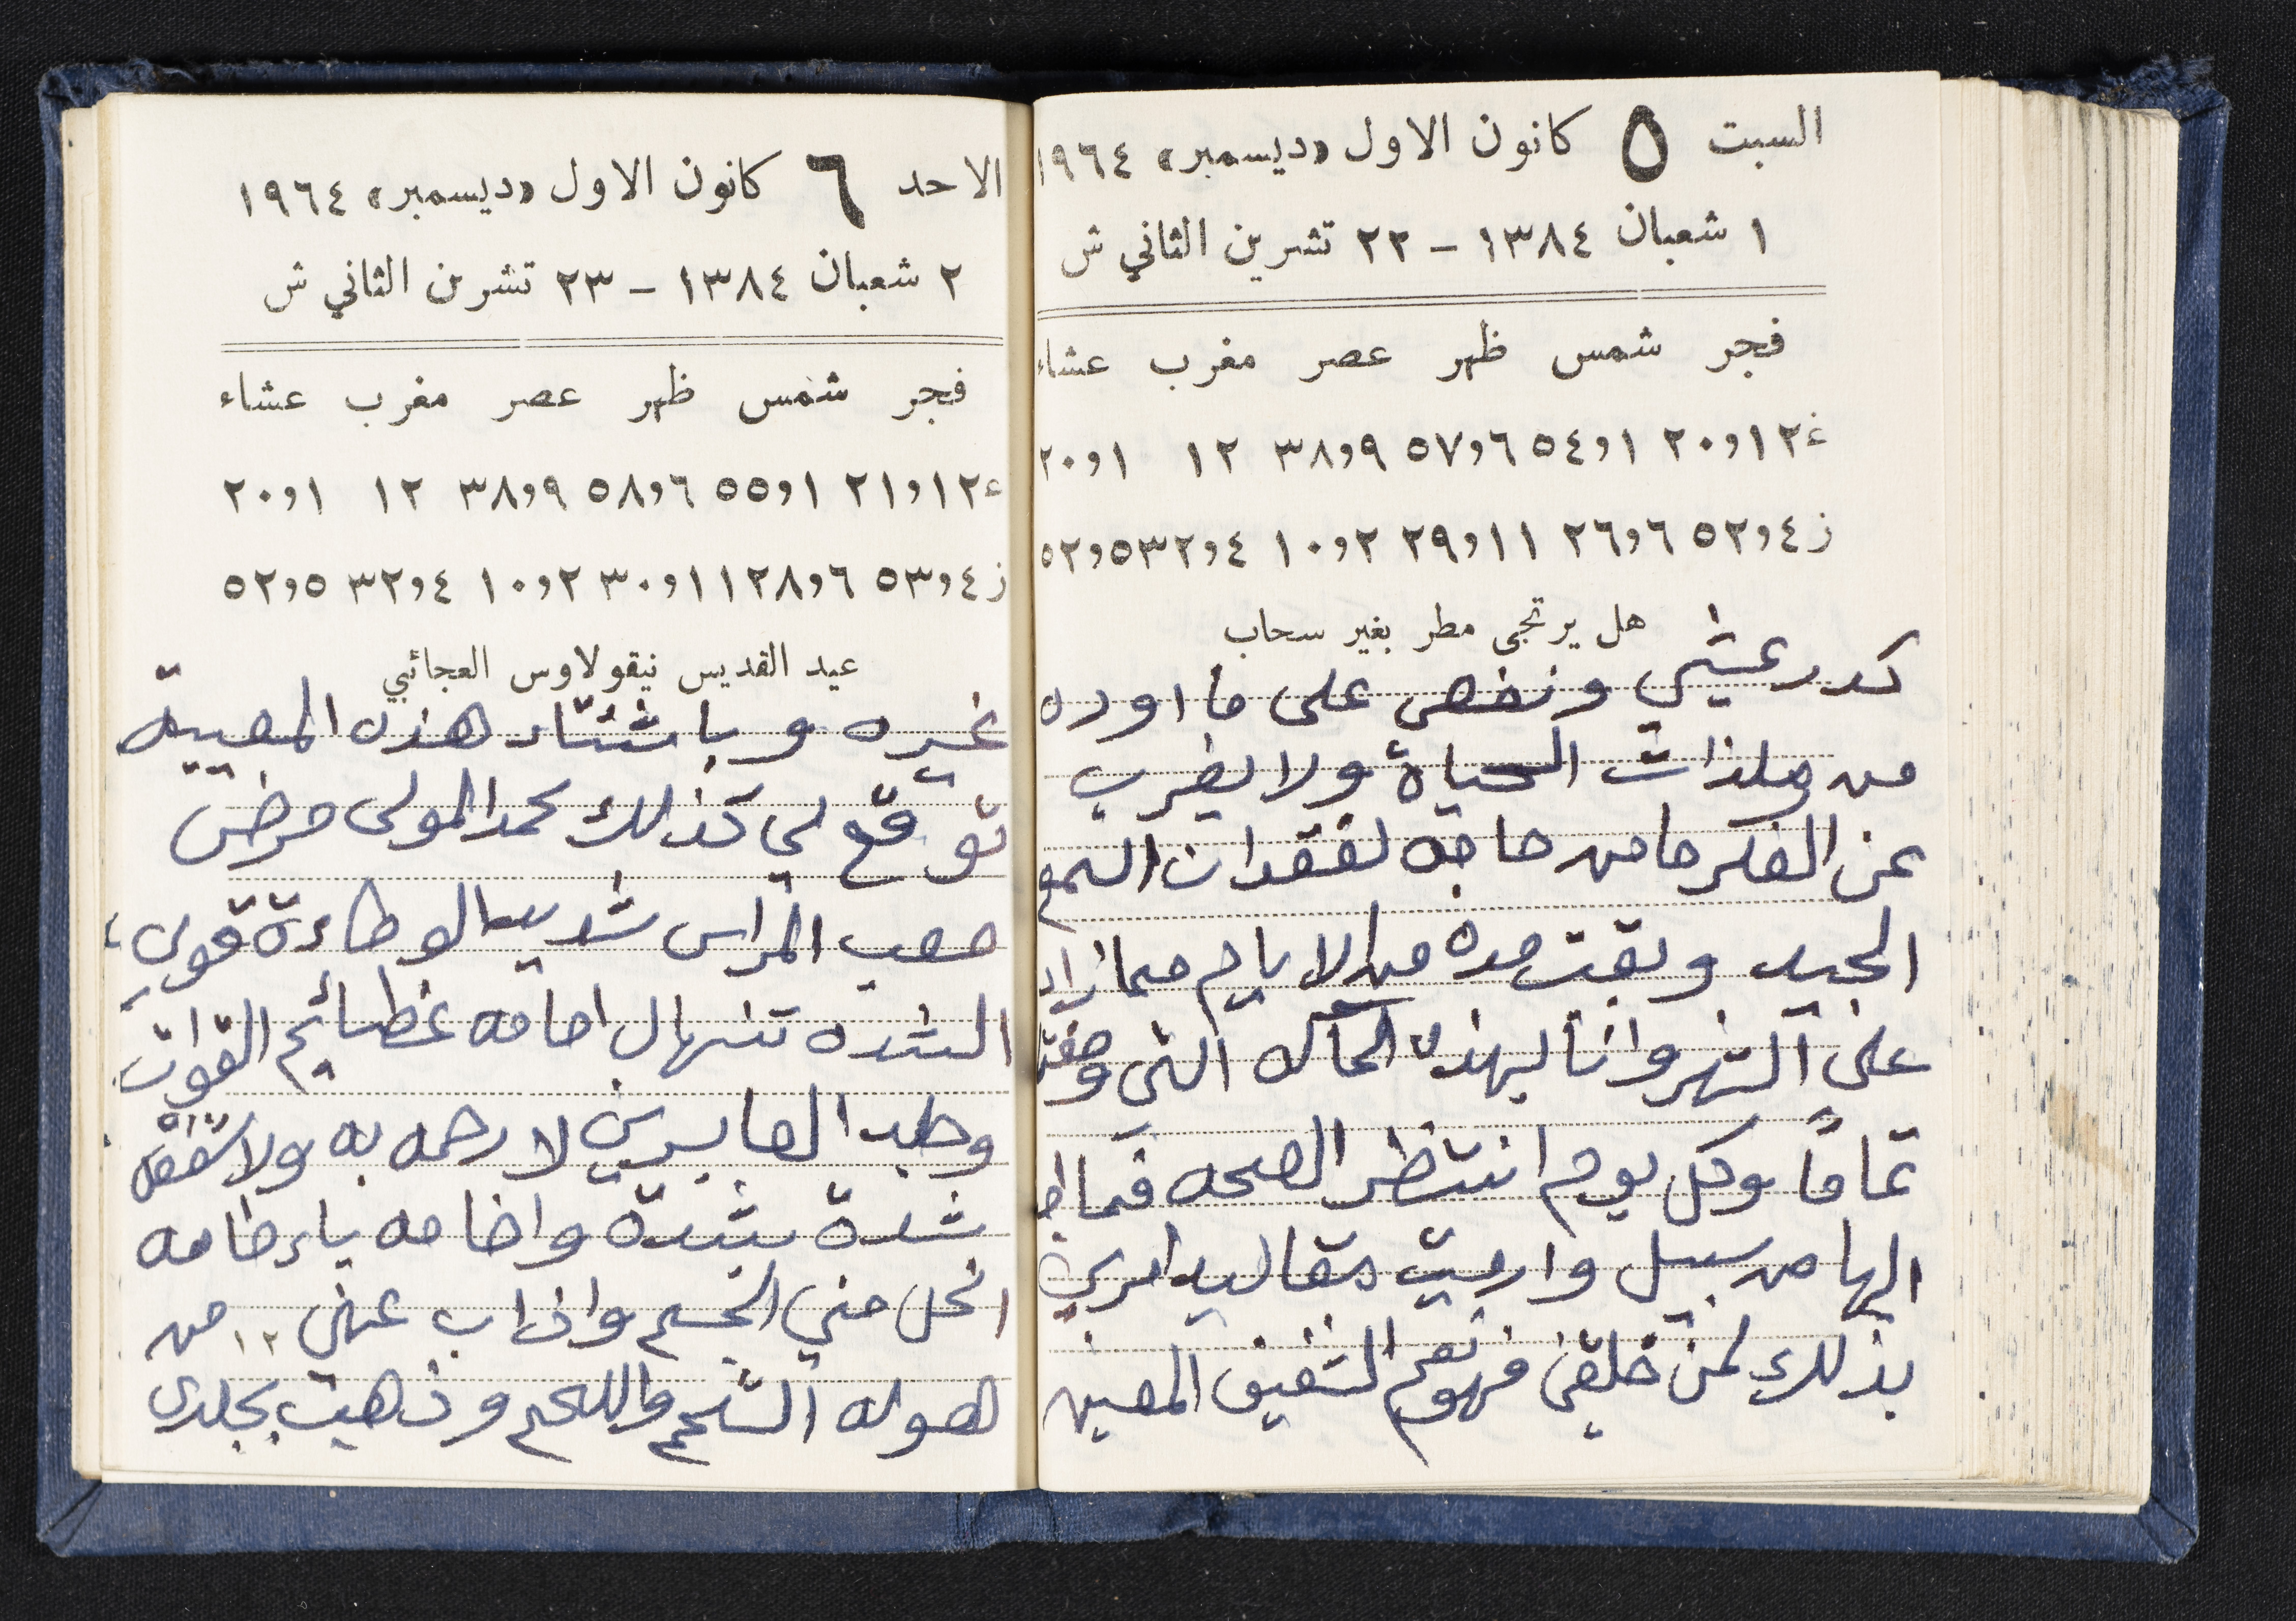 السبت ٥ كانون الاول «ديسمبر» ١٩٦٤
١ شعبان ١٣٨٤ – ٢٢ تشرين الثاني ش
فجر شمس ظهر عصر مغرب عشاء
ع١٢و٢٠ ١و٥٤ ٦و٥٧ ٩و٣٨ ١٢ ١و٢٠
ز٤و٥٢ ٦و٢٦ ١١و٢٩ ٢و١٠ ٤و٣٢ ٥و٥٢
هل يرتجى مطر بغير سحاب
كدر عيشي ونغص على ما اوده
من ملذات الحياة ولا يغرب
عن الفكر ما من حاجه لفقدان السمع
الجيد وبقت مدة من الايام مما زاد
على الشهر وانا بهذه الحاله التي وصفتـ
تماماً وكل يوم انتظر الصحه فما
الها من سبيل وارميت مقاليد امري
بذلك لمن خلقني فهو نعم الشفيق المعين
الاحد ٦ كانون الاول «ديسمبر» ١٩٦٤
٢ شعبان ١٣٨٤ – ٢٣ تشرين الثاني ش
فجر شمس ظهر عصر مغرب عشاء
ع١٢و٢١ ١و٥٥ ٦و٥٨ ٩و٣٨ ١٢ ١و٢٠
ز٤و٥٣ ٦و٢٨ ١١و٣٠ ٢و١٠ ٤و٣٢ ٥و٥٢
عيد القديس نيقولاوس العجائبي
غيره و هذه المصيبة
توقع لي كذلك بحمد المولى مرض
صعب المراس شديد الوطاءة قوي
الشده تنهال امامه عظائم القوات
الصابرين لا رحمه به ولا شفقه
شدة بشدة
انحل مني الجسم واذاب عني من
هوله الشحم واللحم وذهب بجلدي